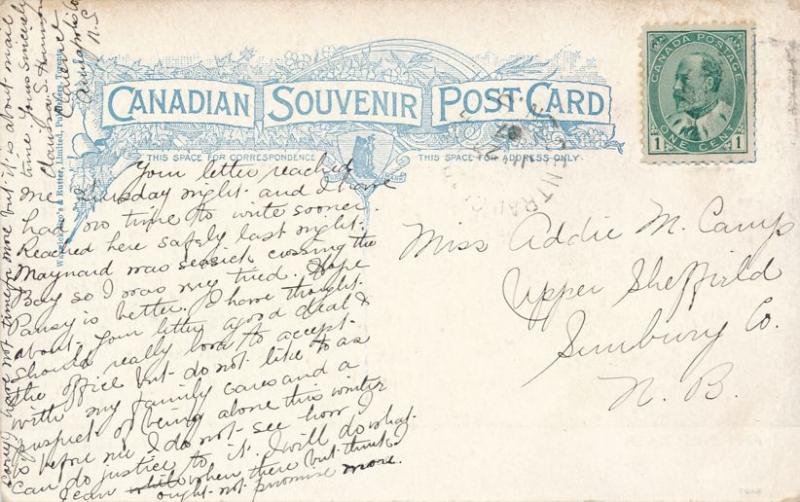 CANADIAN SOUVENIR POST CARD
THIS SPACE FOR CORRESPONDENCE
THIS SPACE FOR ADDRESS ONLY
CANADA POSTAGE
1 ONE CENT 1
Your letter reached
me Thursday night and I have
had no time to write sooner.
Reached here safely last night.
Maynard was seasick crossing the
Bay so I was very tired. Hope
Pansy is better. I have thought
about your letter a good deal &
should really love to accept
the office but do not like to as
with my family cares and a
puspect of being alone this winter
to before me I do not see how I
can do justice to it. I will do what
I can when there but think
ought not promise more.
have not time for more but it is about mail
time. Yours sincerely
N.S
Miss Addie M. Camp
Upper Sheffield
Sunbury Co.
N. B.